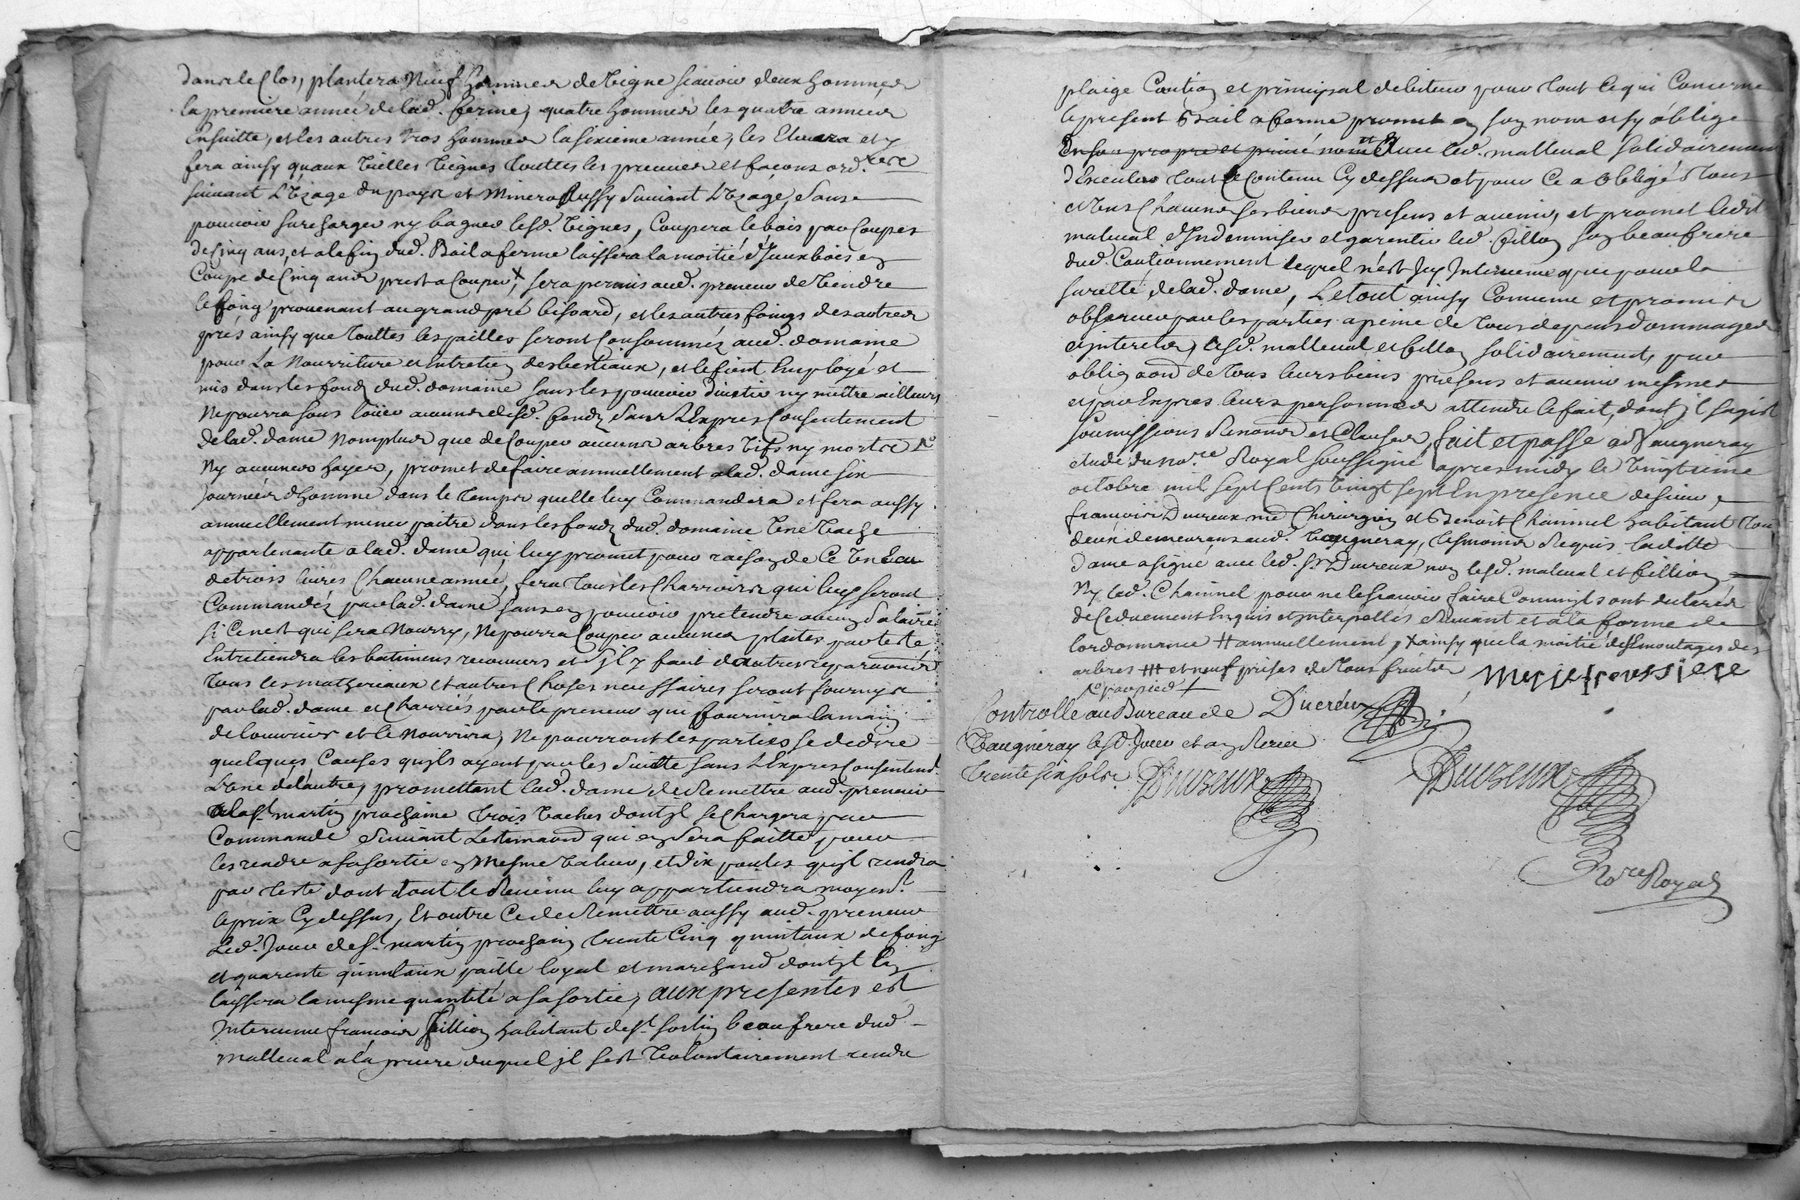 dans le Clos, plantera Neuf hommes de vigne scavoir deux hommes
la premiere année de lad. ferme, quatre hommes les quatre années
Ensuitte, et les autres trois hommes la sixieme année, les Elevera et y
fera ainsy qu'aux vielles vignes touttes les preuves et facons ord.res
suivant L'Uzage du pays et Minera aussy suivant L'Uzage, sans
pouvoir surcharger ny baguer lesd. vignes, Coupera le bois par Coupes
de Cinq ans, et a la fin dud. Bail a ferme laissera la moitié d'Jceux bois en
Coupe de Cinq ans prest a Couper, sera permis aud. preneur de vendre
le foing provenant au grand pré bisoard, et les autres foings des autres
prés ainsy que touttes les pailles seront Consommés aud. domaine
pour La Nourriture et Entretien des bestiaux, et le fient Employé et
mis dans les fonds dud. domaine sans les pouvoir divertir ny mettre ailleurs
Ne pourra sous loüer aucuns desd. fonds sans L'Expres Consentement
de lad. dame nomplus que de Couper aucuns arbres vifs ny morts
Ny aucunes hayes, promet de faire annuellement a lad. dame six
journées d'homme dans le temps quelle luy Commandera et fera aussy
annuellement mener paitre dans les fonds dud. domaine Une vache
appartenante a lad. dame qui luy promet pour raison de Ce Un Ecu
de trois livres Chacune année, fera tous les Charrois qui luy seront
Commandés par lad. dame sans en pouvoir pretendre aucun salaire
si Ce n'est qui sera Nourry, Ne pourra Couper aucunes plantes par teste
Entretiendra les batimens recouverts et s'jl y faut d'autres reparations
tous les mathereaux et autres Choses necessaires seront fournys
par lad. dame et Charriés par le preneur qui fournira la main
de louvrier et le Nourrira, Ne pourront les parties se dedire
quelques Causes qujls ayent par les Suitte sans L'Expres Consentem.t
L'une de lautre, promettant lad. dame de Remettre aud. preneur
a la st martin prochaine trois vaches dont jl se Chargera par
Commande suivant L'estimaon qui en sera faitte pour
les rendre a sa sortie en Mesme valeur, et dix poules qu'jl rendra
par teste dont tout le Revenu luy appartiendra moyen.t
le prix Cy dessus, Et outre Ce de Remettre aussy aud. preneur
Led. Jour de st martin prochain trente Cinq quintaux de foing
et quarente quintaux paille loyal et marchand dont jl en
laissera la mesme quantité a sa sortie, aux presentes est
Intervenu francois fillion habitant de st sorlin beau frere dud.
malleval a la priere duquel jl s'est volontairement rendu
pleige Caution et principal debiteur pour tout Ce qui Concerne
le present Bail a ferme promet en son nom et s'y oblige
En son propre et privé nom et avec led. malleval solidairement
d'Executer tout le Contenu Cy dessus et pour Ce a obligé tous
et Uns Chacuns ses biens presens et avenir, et promet ledit
maleval d'Indemniser et garentir led. fillon son beaufrere
dud. Cautionnement lequel n'est Icy Intervenu que pour la
suretté de lad. dame, Le tout ainsy Convenu et promis
observer par les parties a peine de tous depens dommages
et interets, lesd. malleval et fillon solidairement, par
obligaon de tous leurs biens presens et avenir mesmes
et par Expres leurs personnes attendu le fait, dont jl s'agist
soumissions Renons et Clauses, fait et passé a Vaugneray
etude du no.re Royal soussigné apres midy le vingtieme
octobre mil sept Cents vingt sept En presence de sieur
francois Ducreux me Chirurgien et Benoit Chainnel habitant tous
deux demeurans aud. Vaugneray, tesmoins Requis laditte
dame a signé avec led. sr Ducreux non lesd. maleval et fillion
Ny led. Chainnel pour ne le scavoir faire Comm'jls ont declaré
de Ce duement Enquis et Interpellés suivant et a la forme de
lordonnance # annuellement, + ainsy que la moitié des montages des
arbres ### et neuf prises de tous fruits
par pied +
Controllé au Bureau de Ducreux
Vaugneray led. Jour et an Receu
trente six sols. Ducreux
Ducreux
No.re Royal